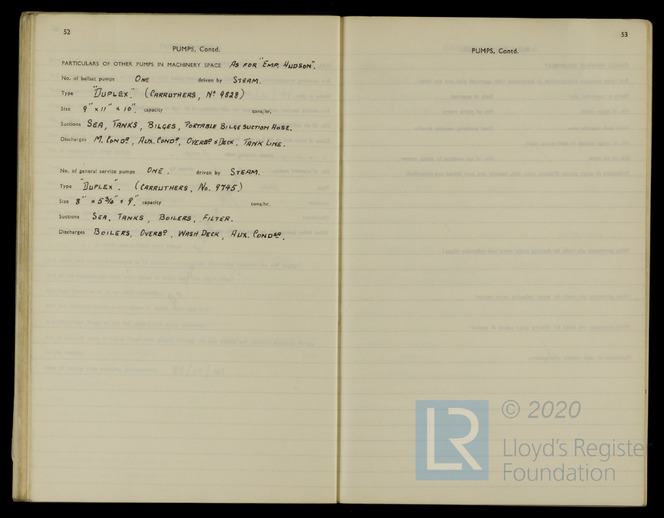 52
PUMPS, Contd.
PARTICULARS OF OTHER PUMPS IN MACHINERY SPACE AS FOR "EMP. HUDSON".
No. of ballast pumps ONE driven by STEAM.
Type "DUPLEX". (CARRUTHERS, No 9828)
Size 9" x 11" x 10". capacity tons/hr.
Suctions SEA, TANKS, BILGES, PORTABLE BILGE SUCTION HOSE.
Discharges M. CONDR, AUX. CONDR, OVERBD & DECK, TANK LINE.
No. of general service pumps ONE. driven by STEAM.
Type "DUPLEX". (CARRUTHERS, No. 9745)
Size 8" x 5¾" x 9". capacity tons/hr.
Suctions SEA, TANKS, BOILERS, FILTER.
Discharges BOILERS, OVERBD, WASH DECK, AUX. CONDR.
53
PUMPS, Contd.
LR © 2020
Lloyd's Register
Foundation